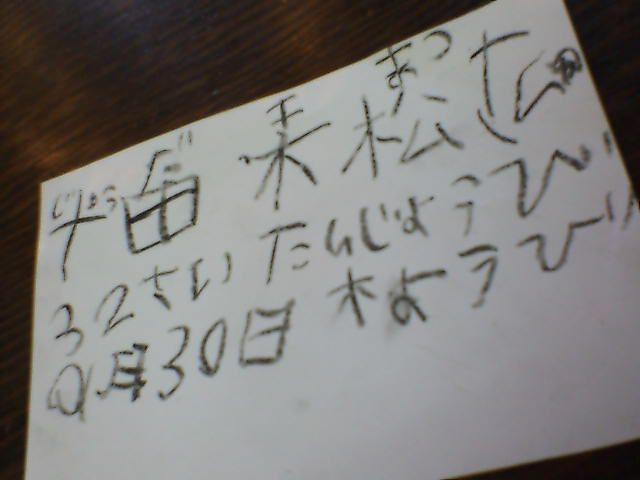 じゅう だ まつ
十田 来松さん
32さい たんじょうび
9月30日 木ようび